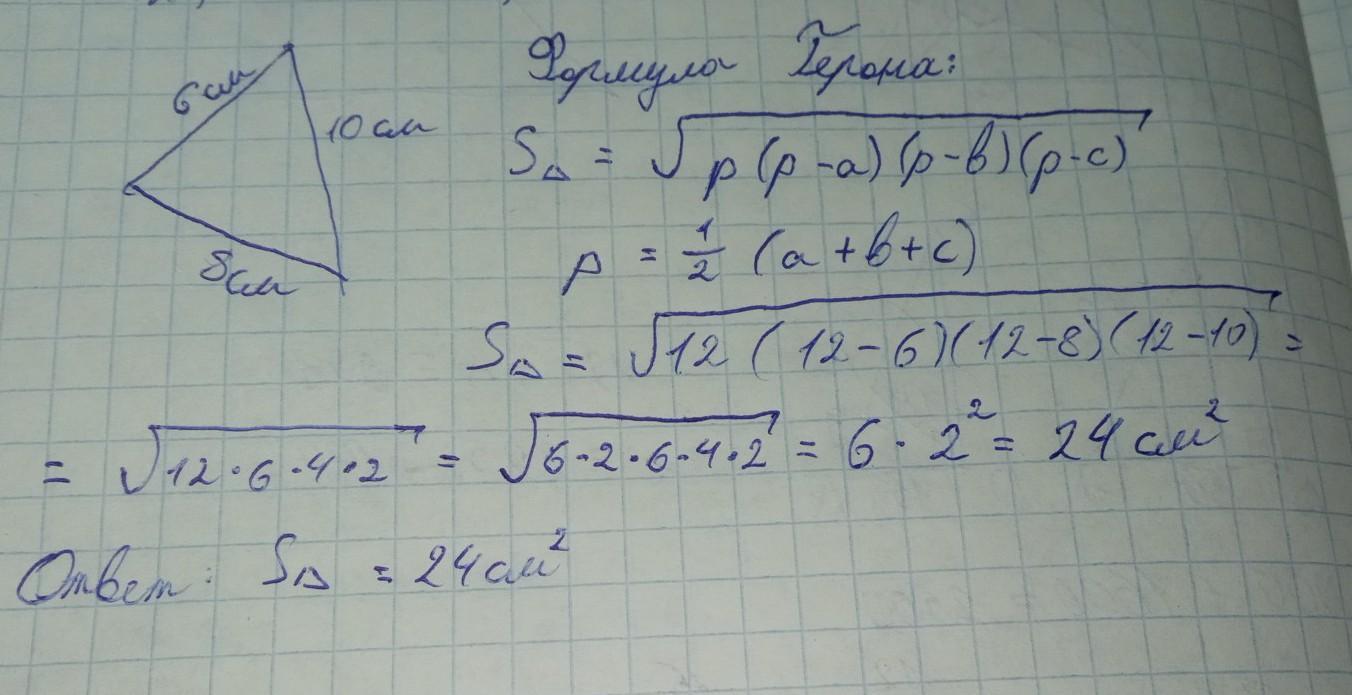 6 см
10 см
8 см
Формула Герона:
S△ = √p(p-a)(p-b)(p-c)
p = 1/2 (a+b+c)
S△ = √12(12-6)(12-8)(12-10) =
= √12·6·4·2 = √6·2·6·4·2 = 6·2² = 24 см²
Ответ: S△ = 24 см²